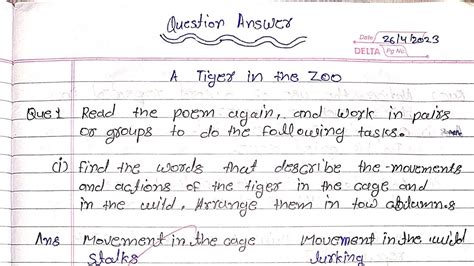 Question Answer
Date 26/4/2023
DELTA Pg No.
A Tiger in the Zoo
Que 1 Read the poem again, and work in pairs
or groups to do the following tasks.
(i) find the words that describe the movements
and actions of the tiger in the cage and
in the wild, Arrange them in tow
Ans Movement in the cage Movement in the wild
stalks lurking